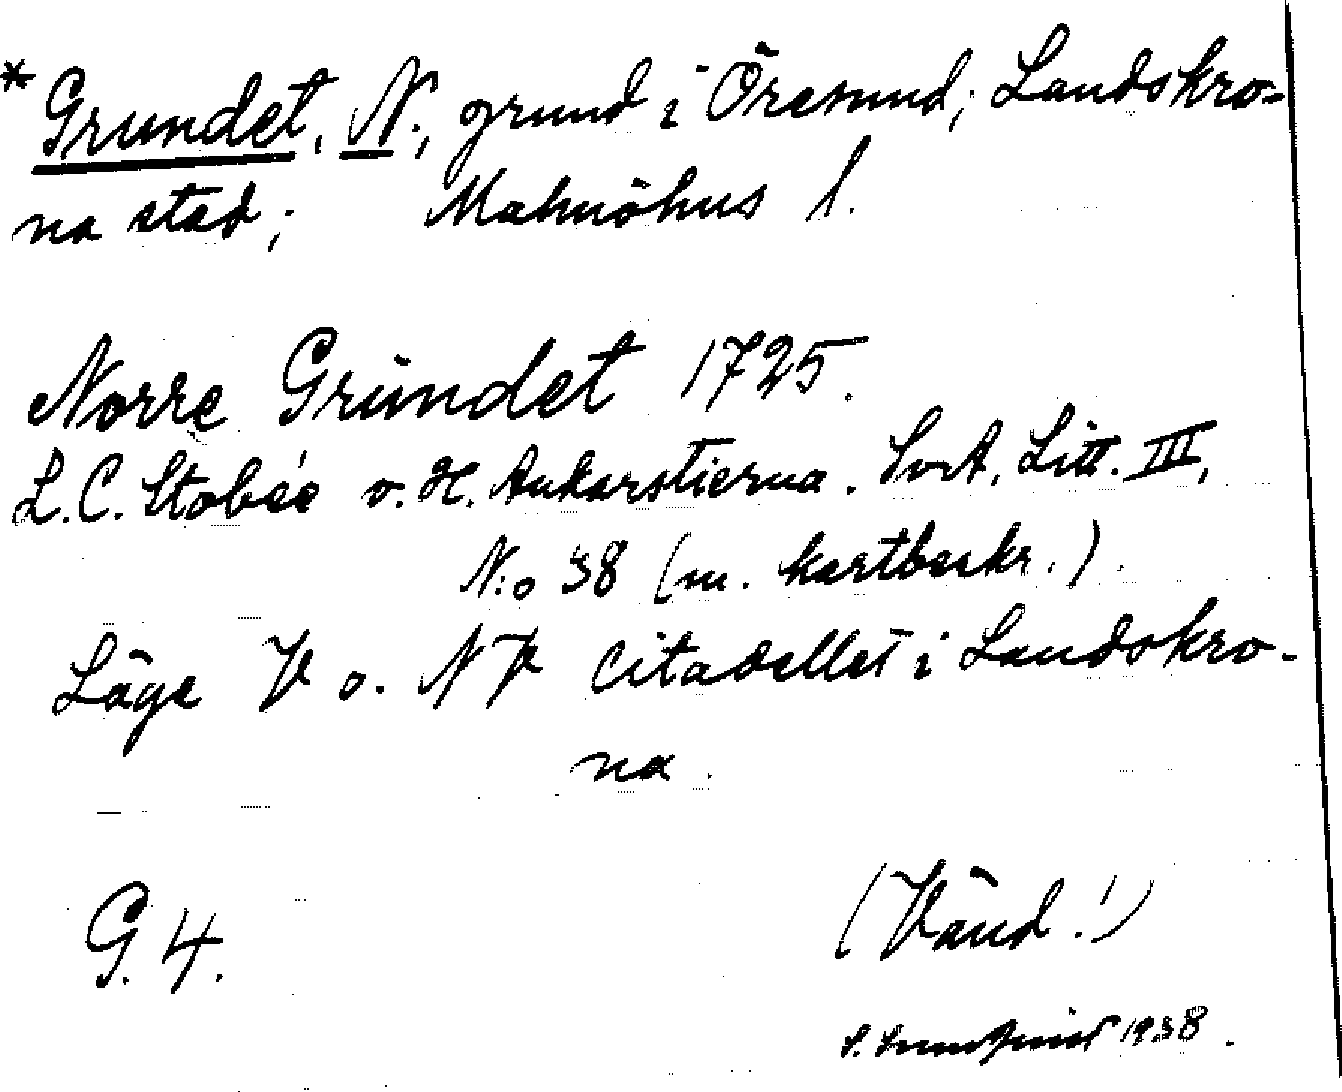 * Grundet, N., grund i Öresund; Landskro-
na stad; Malmöhus l.
Norre Grŭndet 1725.
L.C. Stobée o. H. Ankarstierna. SvA, Litt. III,
N:o 38 (m. kartbeskr.).
Läge V o. NV citadellet i Landskro-
na.
G. 4.
(Vänd!)
1938.